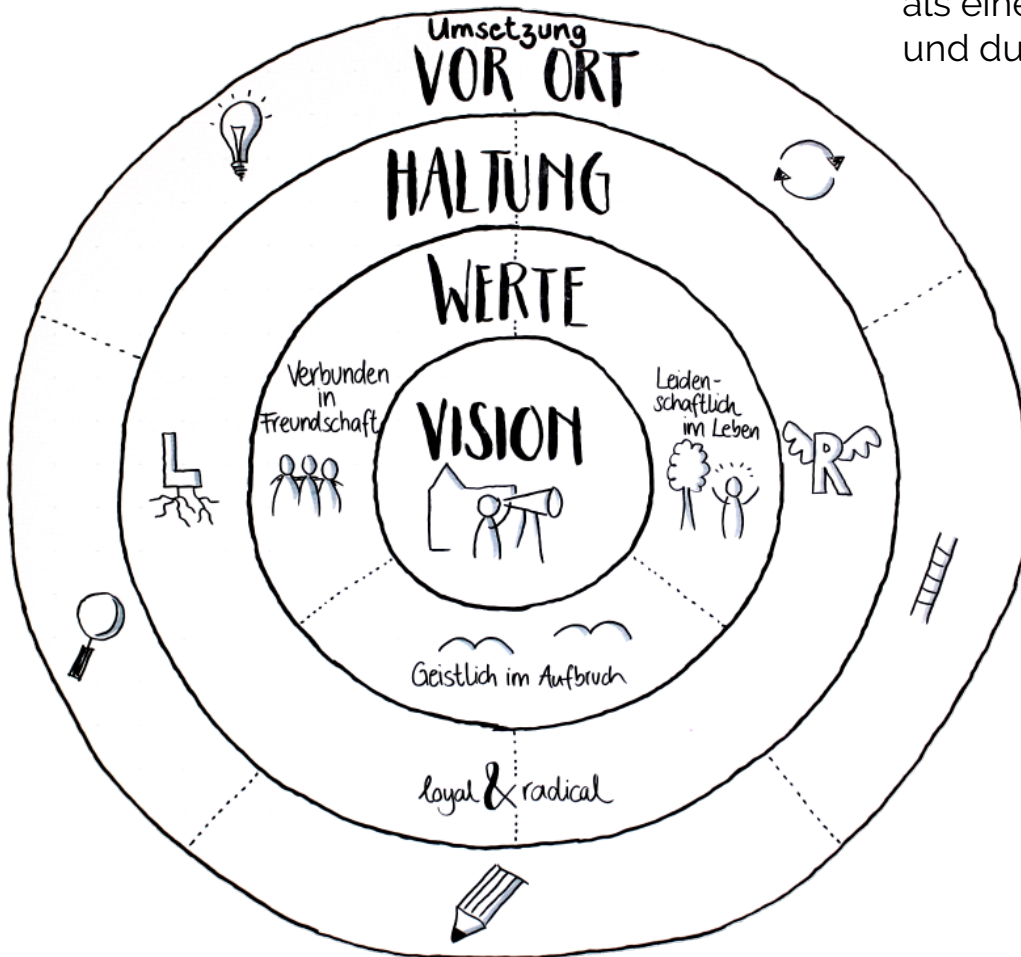 als eine
und du
Umsetzung
VOR ORT
HALTUNG
WERTE
Verbunden
in
Freundschaft
Leiden-
schaftlich
im Leben
VISION
L
R
Geistlich im Aufbruch
loyal & radical